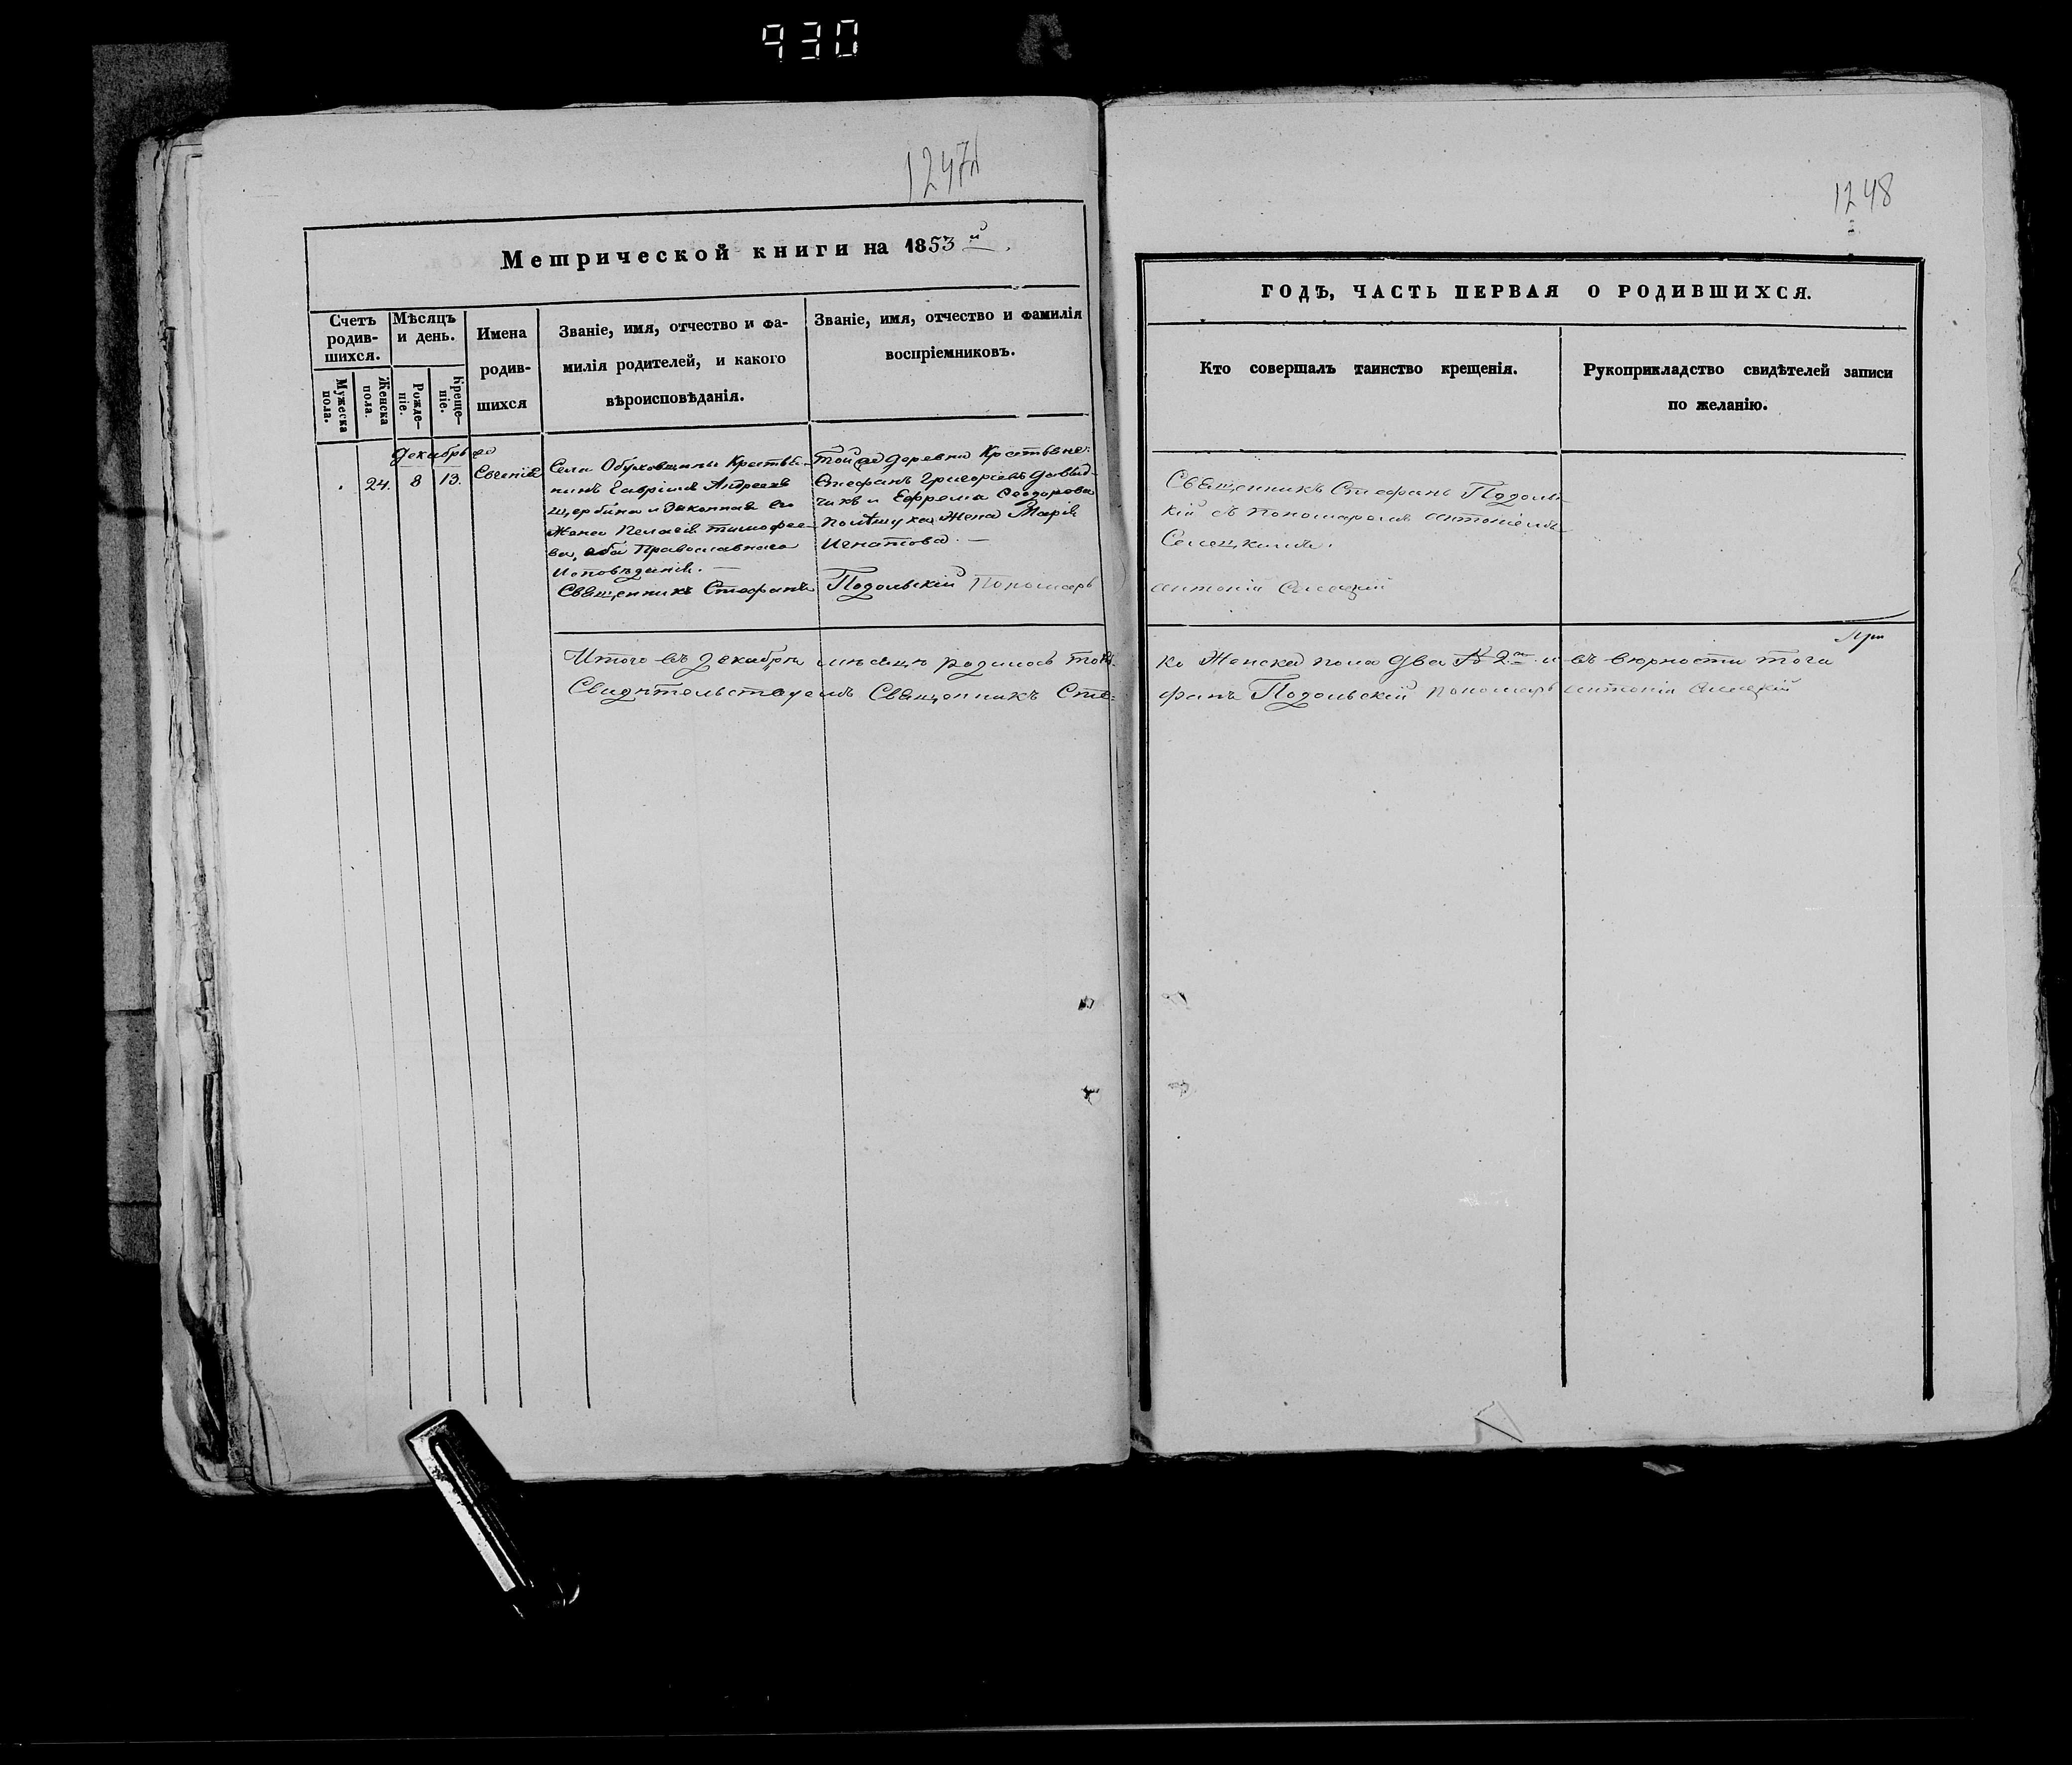 930
1247
Метрической книги на 1853 й
Счетъ родив-шихся.
Мѣсяцъ и день.
Имена родив-шихся
Званіе, имя, отчество и фа-
милія родителей, и какого
вѣроисповѣданія.
Званіе, имя, отчество и фамилія
воспріемниковъ.
Мужеска пола.
Женска пола.
Рожде-ніе.
Креще-ніе.
Декабрь
24. 8 13. Евгенія
Села Обуховщины Крестья-
нинъ Гавріилъ Андреевъ
Щербина и Законная его
Жена Пелагія Тимофее-
ва, оба Православнаго
Исповѣданія. —
Священникъ Стефанъ Подольскій Пономарь
Той же деревни Крестьяне
Стефанъ Григоріевъ
и Ефрема Феодорова
Жена Марія
Игнатова. —
Итого въ Декабрѣ мѣсяцѣ родилось толь-
Свидѣтельствуемъ Священникъ Сте-
1248
ГОДЪ, ЧАСТЬ ПЕРВАЯ О РОДИВШИХСЯ.
Кто совершалъ таинство крещенія.
Рукоприкладство свидѣтелей записи
по желанію.
Священникъ Стефанъ Подоль-
кій съ Пономаремъ Антоніемъ
Селецкимъ.
Антоній Селецкій
ко Женска пола два 2 и въ вѣрности того
фанъ Подольскій Пономарь Антоній Селецкій